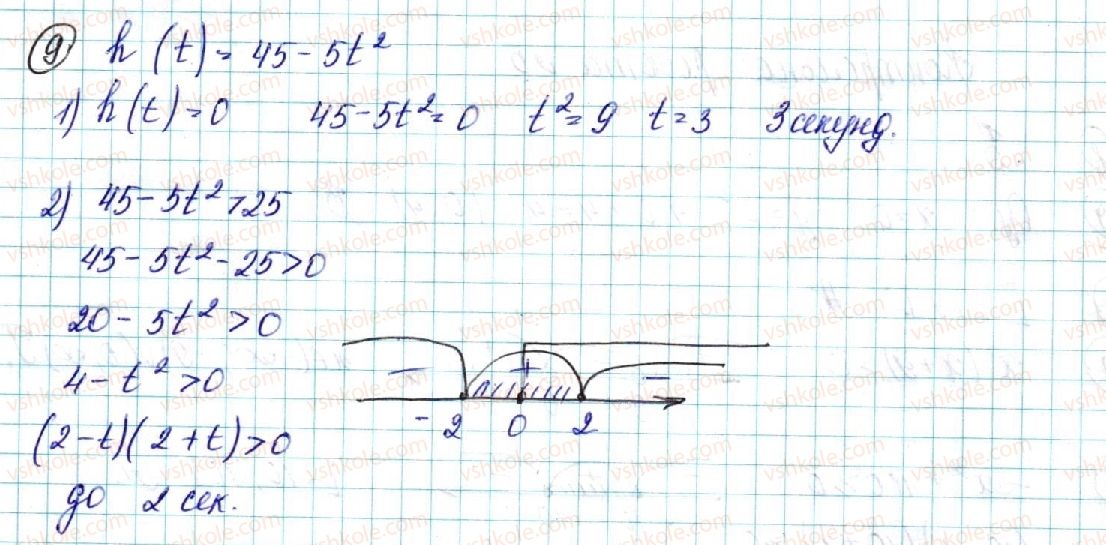 9) h(t) = 45 - 5t²
1) h(t) = 0 45 - 5t² = 0 t² = 9 t = 3 3 секунд.
2) 45 - 5t² > 25
45 - 5t² - 25 > 0
20 - 5t² > 0
4 - t² > 0
- + -
-2 0 2
(2 - t)(2 + t) > 0
до 2 сек.